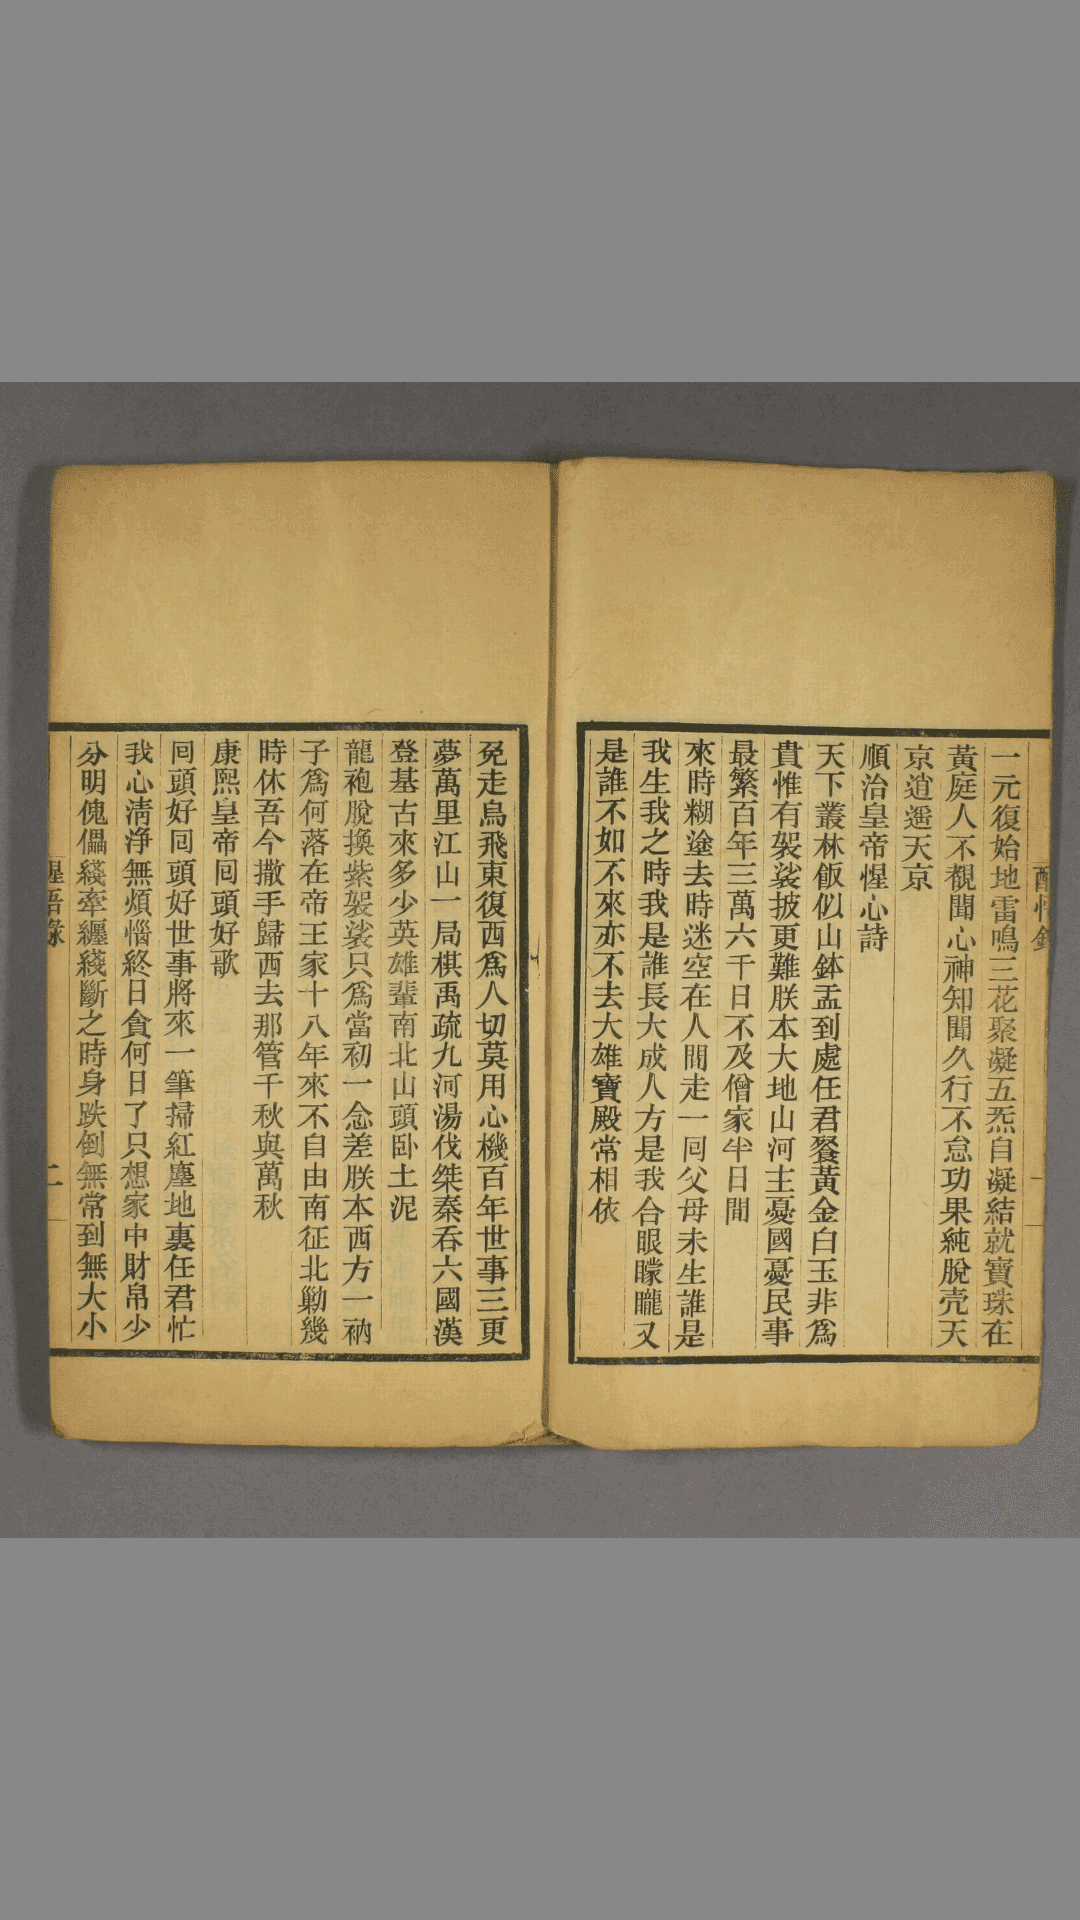 一元復始地雷鳴三花聚凝五炁自凝結就寶珠在
黃庭人不覩聞心神知聞久行不怠功果純脫壳天
京逍遥天京
順治皇帝惺心詩
天下叢林飯似山鉢盂到處任君餐黃金白玉非爲
貴惟有袈裟披更難朕本大地山河主憂國憂民事
最繁百年三萬六千日不及僧家半日閒
來時糊塗去時迷空在人間走一囘父母未生誰是
我生我之時我是誰長大成人方是我合眼矇矓又
是誰不如不來亦不去大雄寶殿常相依
兎走烏飛東復西爲人切莫用心機百年世事三更
夢萬里江山一局棋禹疏九河湯伐桀秦吞六國漢
登基古來多少英雄輩南北山頭卧土泥
龍袍脫換紫袈裟只爲當初一念差朕本西方一衲
子爲何落在帝王家十八年來不自由南征北勦幾
時休吾今撒手歸西去那管千秋與萬秋
康熙皇帝囘頭好歌
囘頭好囘頭好世事將來一筆掃紅塵地裏任君忙
我心淸淨無煩惱終日貪何日了只想家中財帛少
分明傀儡綫牽纏綫斷之時身跌倒無常到無大小
二